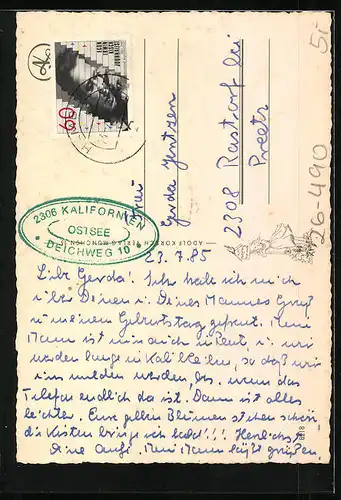 5,-
26-490
60
Frau
Gerda Jentzen
2308 Rastorf bei
Preetz
2306 KALIFORNIEN
OSTSEE
DEICHWEG 10
ADOLF KORSCH VERLAG MÜNCHEN
23.7.85
Liebe Gerda! Ich habe ich mich
über Deinen u. Deines Mannes Gruß
zu meinem Geburtstag gefreut. Mein
Mann ist nun auch in Rente u. wir
werden lange in Kalif. bleiben, so daß wir
uns melden werden, bes. wenn das
Telefon endlich da ist. Dann ist alles
leichter. Eure gelben Blumen stehen schön,
die Kisten bringe ich bald!!! Herzlichst
Deine Mein Mann läßt grüßen.